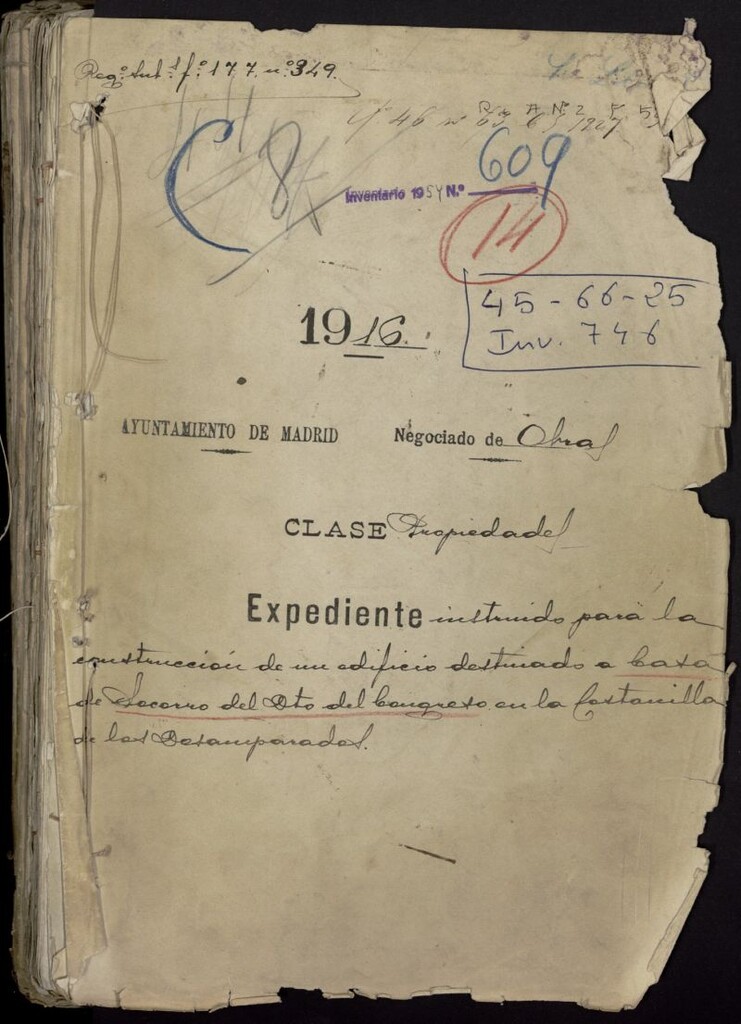 Reg.º Int.º f.º 177. n.º 349.
Nº 2
C 8
Inventario 1954 N.º 609
14
45-66-25
Inv. 746
1916.
AYUNTAMIENTO DE MADRID Negociado de Obras
CLASE Propiedades
Expediente instruido para la
construcción de un edificio destinado a Casa
de Socorro del Dto del Congreso en la Costanilla
de los Desamparados.